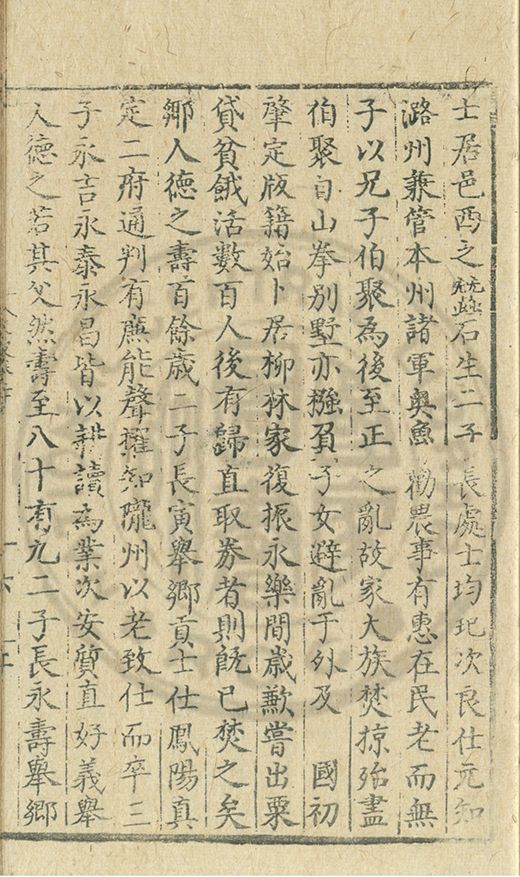 士居邑西之 石生二子長處士均玘次良仕元知
潞州兼管本州諸軍奥魯 勸農事有惠在民老而無
子以兄子伯聚為後至正之亂故家大族焚掠殆盡
伯聚自山拳別墅亦襁負子女避亂于外及 國初
肇定版籍始卜居柳林家復振永樂間歲歉嘗出粟
貸貧餓活數百人後有歸直取劵者則旣已焚之矣
鄉人德之壽百餘歲二子長寅舉鄉貢士仕鳳陽真
定二府通判有廉能聲擢知隴州以老致仕而卒三
子永吉永泰永昌皆以耕讀為業次安質直好義舉
人德之若其父然壽至八十有九二子長永壽舉鄉